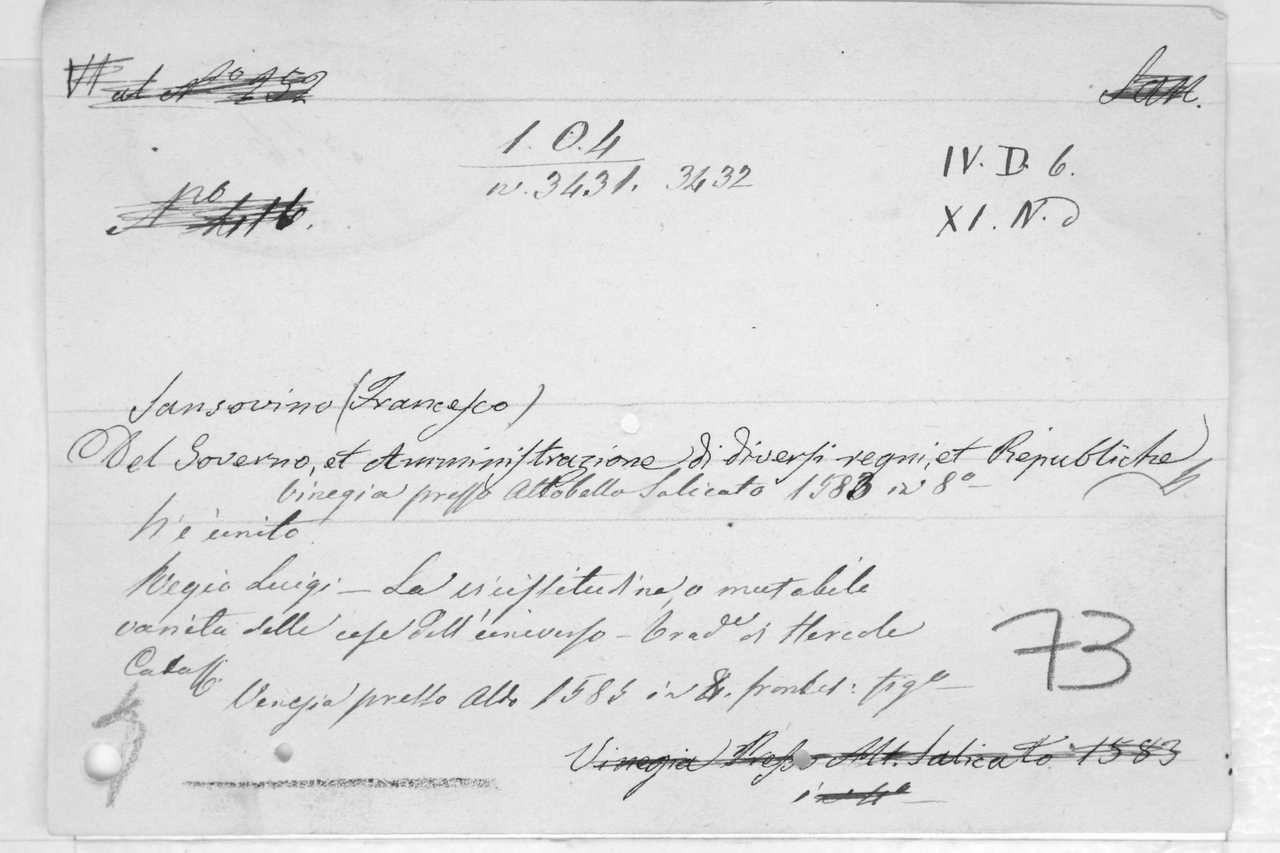 VII al No 152
San.
1. O. 4
n. 3431. 3432
IV. D. 6.
No 416.
XI. N. d
Sansovino (Francesco)
Del Governo, et Amministrazione di diversi regni, et Republiche
Vinegia presso Altobello Salicato 1583 in 8o
V'è unito
Regio Luigi - La vicissitudine, o mutabile
varietà delle cose dell'universo - Trade di Hercole
Cataff.
73
Venezia presso Aldo 1585 in 4. frontis: figo
Vinegia Presso Alt. Salicato 1583
in 4o